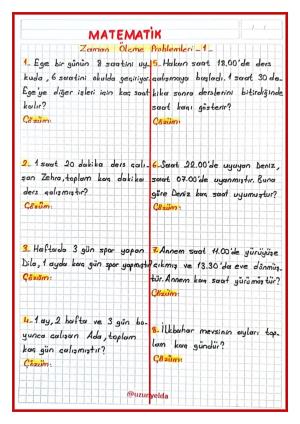 MATEMATİK
Zaman Ölçme Problemleri -1-
1- Ege bir günün 8 saatini uy-
kuda, 6 saatini okulda geçiriyor.
Ege'ye diğer işleri için kaç saat
kalır?
Çözüm:
2- 1 saat 20 dakika ders çalı-
şan Zehra, toplam kaç dakika
ders çalışmıştır?
Çözüm:
3- Haftada 3 gün spor yapan
Dila, 1 ayda kaç gün spor yapmıştır?
Çözüm:
4- 1 ay, 2 hafta ve 3 gün bo-
yunca çalışan Ada, toplam
kaç gün çalışmıştır?
Çözüm:
5- Hakan saat 18.00'de ders
çalışmaya başladı. 1 saat 30 da-
kika sonra derslerini bitirdiğinde
saat kaçı gösterir?
Çözüm:
6- Saat 22.00'de uyuyan Deniz,
saat 07.00'de uyanmıştır. Buna
göre Deniz kaç saat uyumuştur?
Çözüm:
7- Annem saat 11.00'de yürüyüşe
çıkmış ve 13.30'da eve dönmüş-
tür. Annem kaç saat yürümüştür?
Çözüm:
8- İlkbahar mevsinin ayları top-
lam kaç gündür?
Çözüm:
@uzunyelda